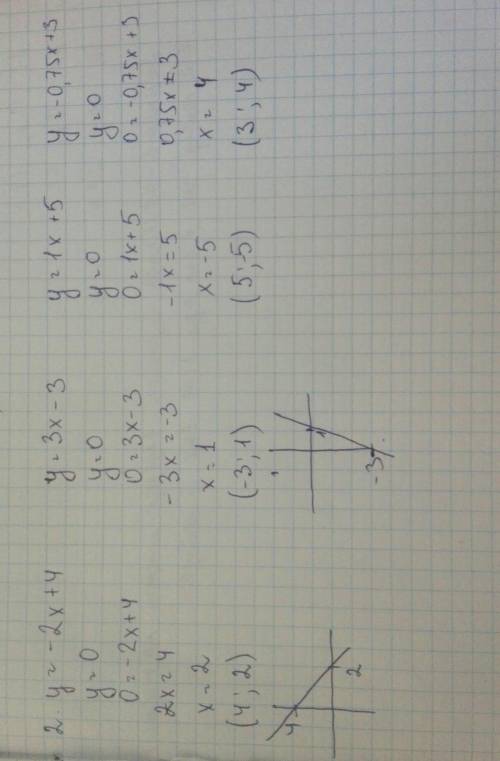 2. y = -2x + 4
y = 0
0 = -2x + 4
2x = 4
x = 2
(4; 2)
4
2
y = 3x - 3
y = 0
0 = 3x - 3
-3x = -3
x = 1
(-3; 1)
1
-3
y = 1x + 5
y = 0
0 = 1x + 5
-1x = 5
x = -5
(5; -5)
y = -0,75x + 3
y = 0
0 = -0,75x + 3
0,75x ± 3
x = 4
(3; 4)